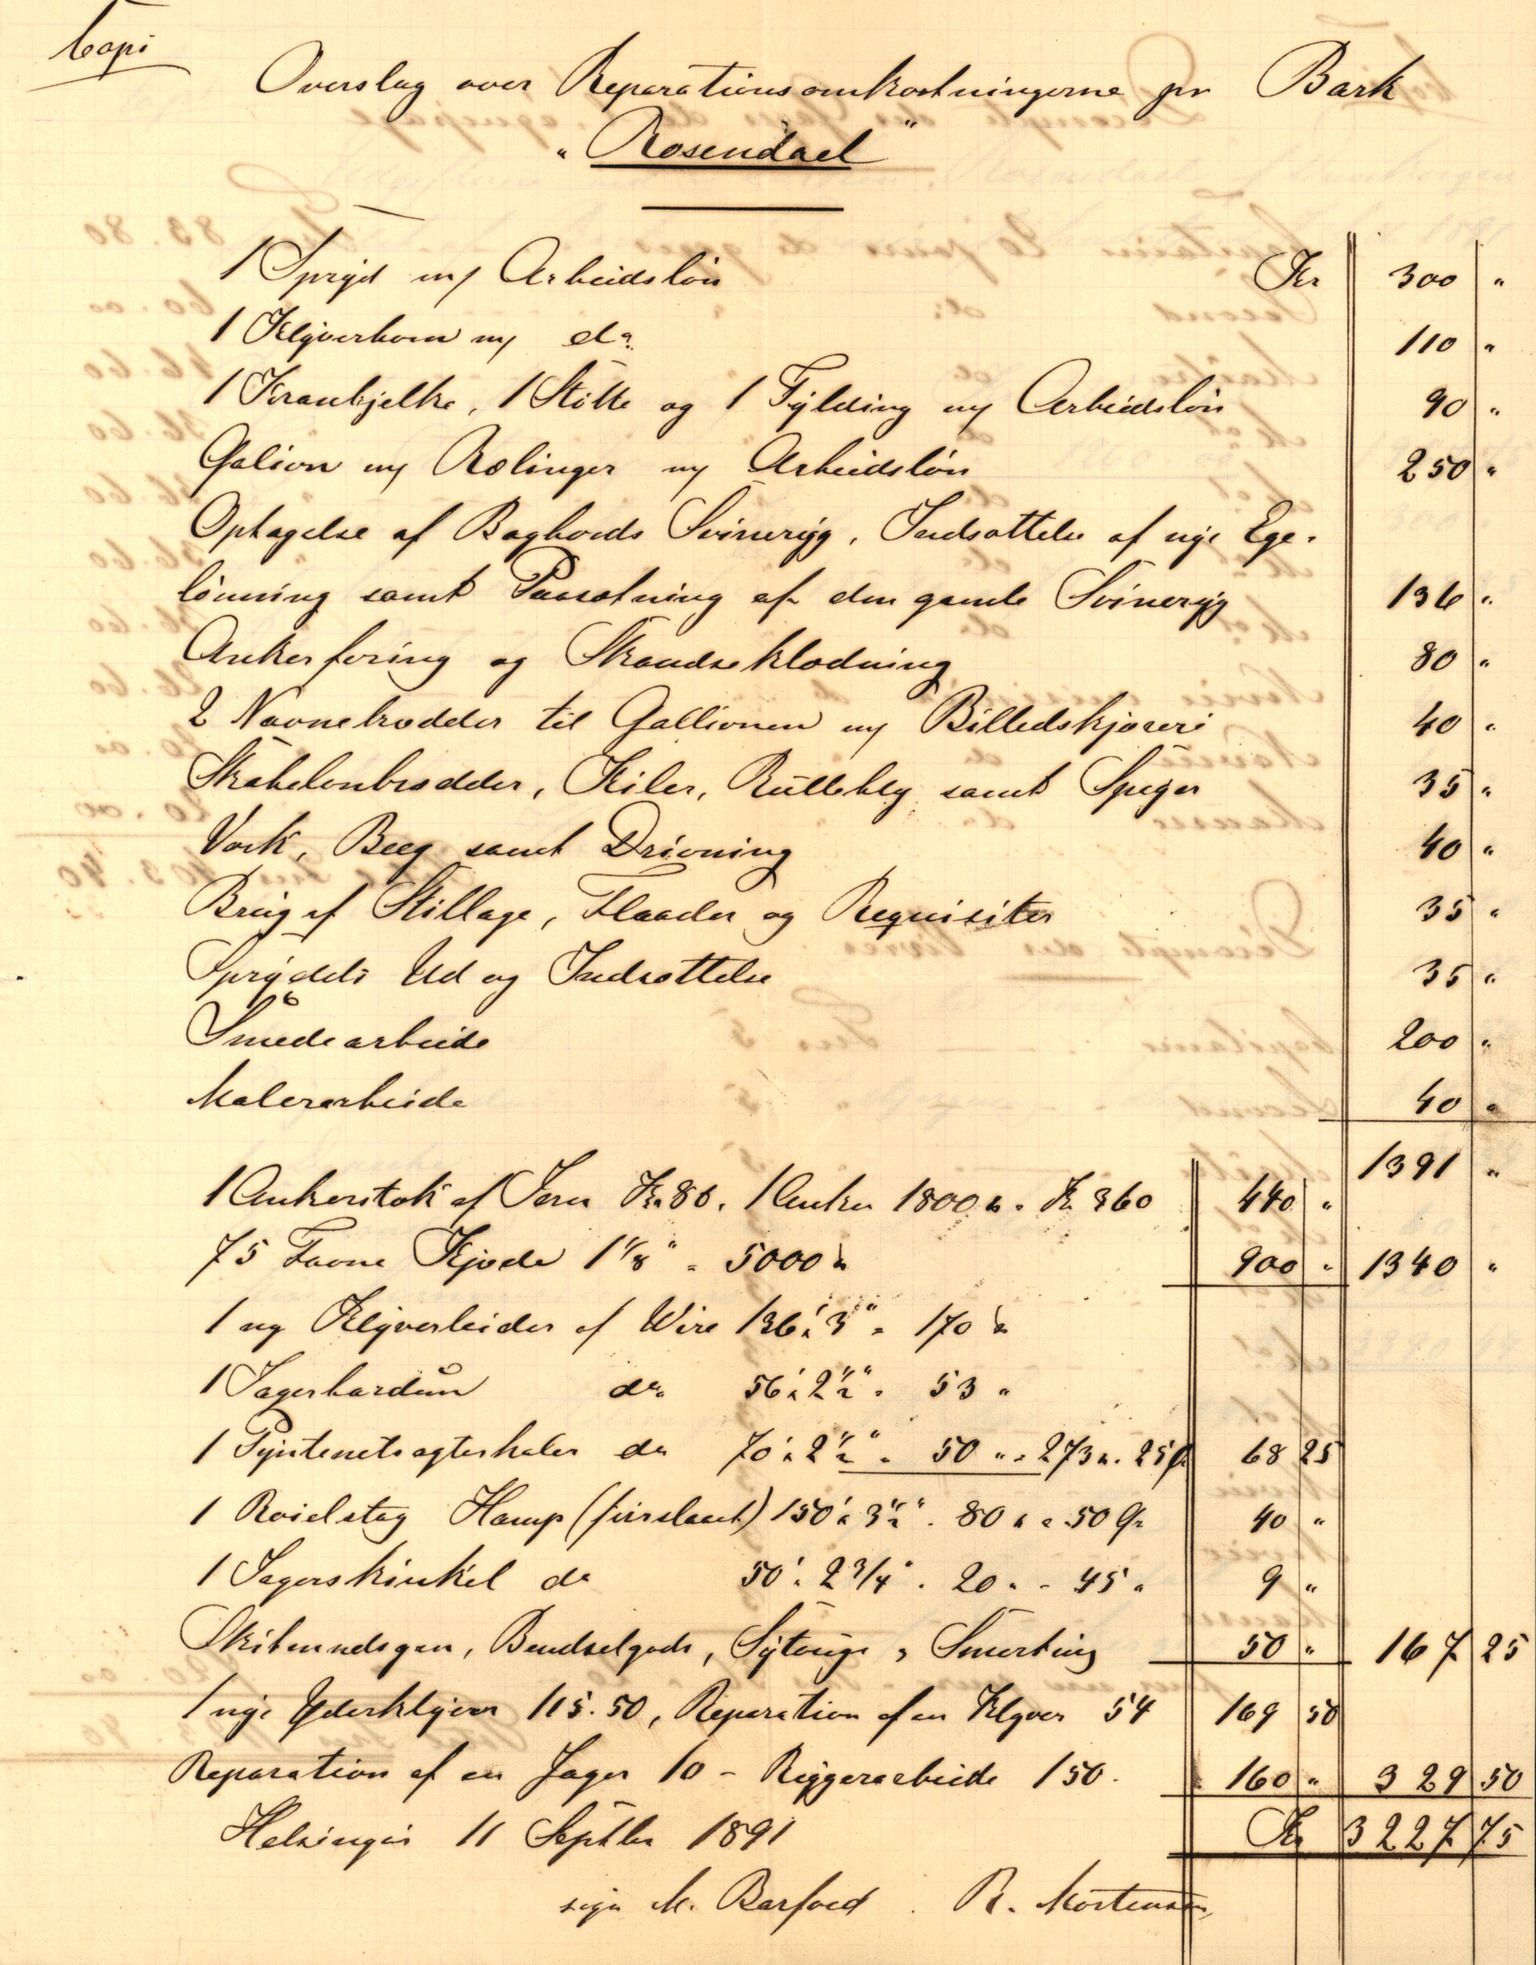 Copi
Overslag over Reparationsomkostningerne pr Bark
"Rosendael"
1 Spryd ny Arbeidsløn Kr 300 "
1 Klyverbom ny do 110 "
1 Kranbjelke, 1 Støtte og 1 Fylding ny Arbeidsløn 90 "
Galion ny Rælinger ny Arbeidsløn 250 "
Optagelse af Bagbords Svineryg, Indsættelse af nye Ege-
lønning samt Paasætning af den gamle Svineryg 136 "
Ankerforing og Skandseklædning 80 "
2 Navnebrædder til Gallionen ny Billedskjæreri 40 "
Kiler, Rullebly samt Spiger 35 "
Værk, Beeg samt Drivning 40 "
Brug af Stillage, Flaader og Requisiter 35 "
Spryddets Ud og Indsættelse 35 "
Smedearbeide 200 "
Malerarbeide 40 "
1391 "
1 Ankerstok af Jern Kr 80. 1 Anker 1800 lb. Kr 360 440 "
75 Favne Kjæde 1 1/8 " = 5000 lb 900 " 1340 "
1 ny Klyverleider af Wire 136' à 3" = 170 lb
1 Jagerbardun do 56' à 2 1/2" = 53 "
1 Pyntenetsagterhaler do 70' à 2 1/2" = 50 " = 273 lb. 25 Ø 68 25
1 Roielstag Hamp (fiirslaaet) 150' à 3 1/2" = 80 lb à 50 Ør 40 "
1 Jagerskinkel do 50' à 2 3/4" = 20 " - 45 " 9 "
Skibmandsgarn, Bendselgods, Smerting 50 " 167 25
1 nye Yderklyver 115.50, Reparation af en Klyver 54 169 50
Reparation af en Jager 10 - Riggerarbeide 150. 160 " 329 50
Helsingør 11 Septbr 1891 Kr 3227 75
sign M. Barfoed . R. Mortensen